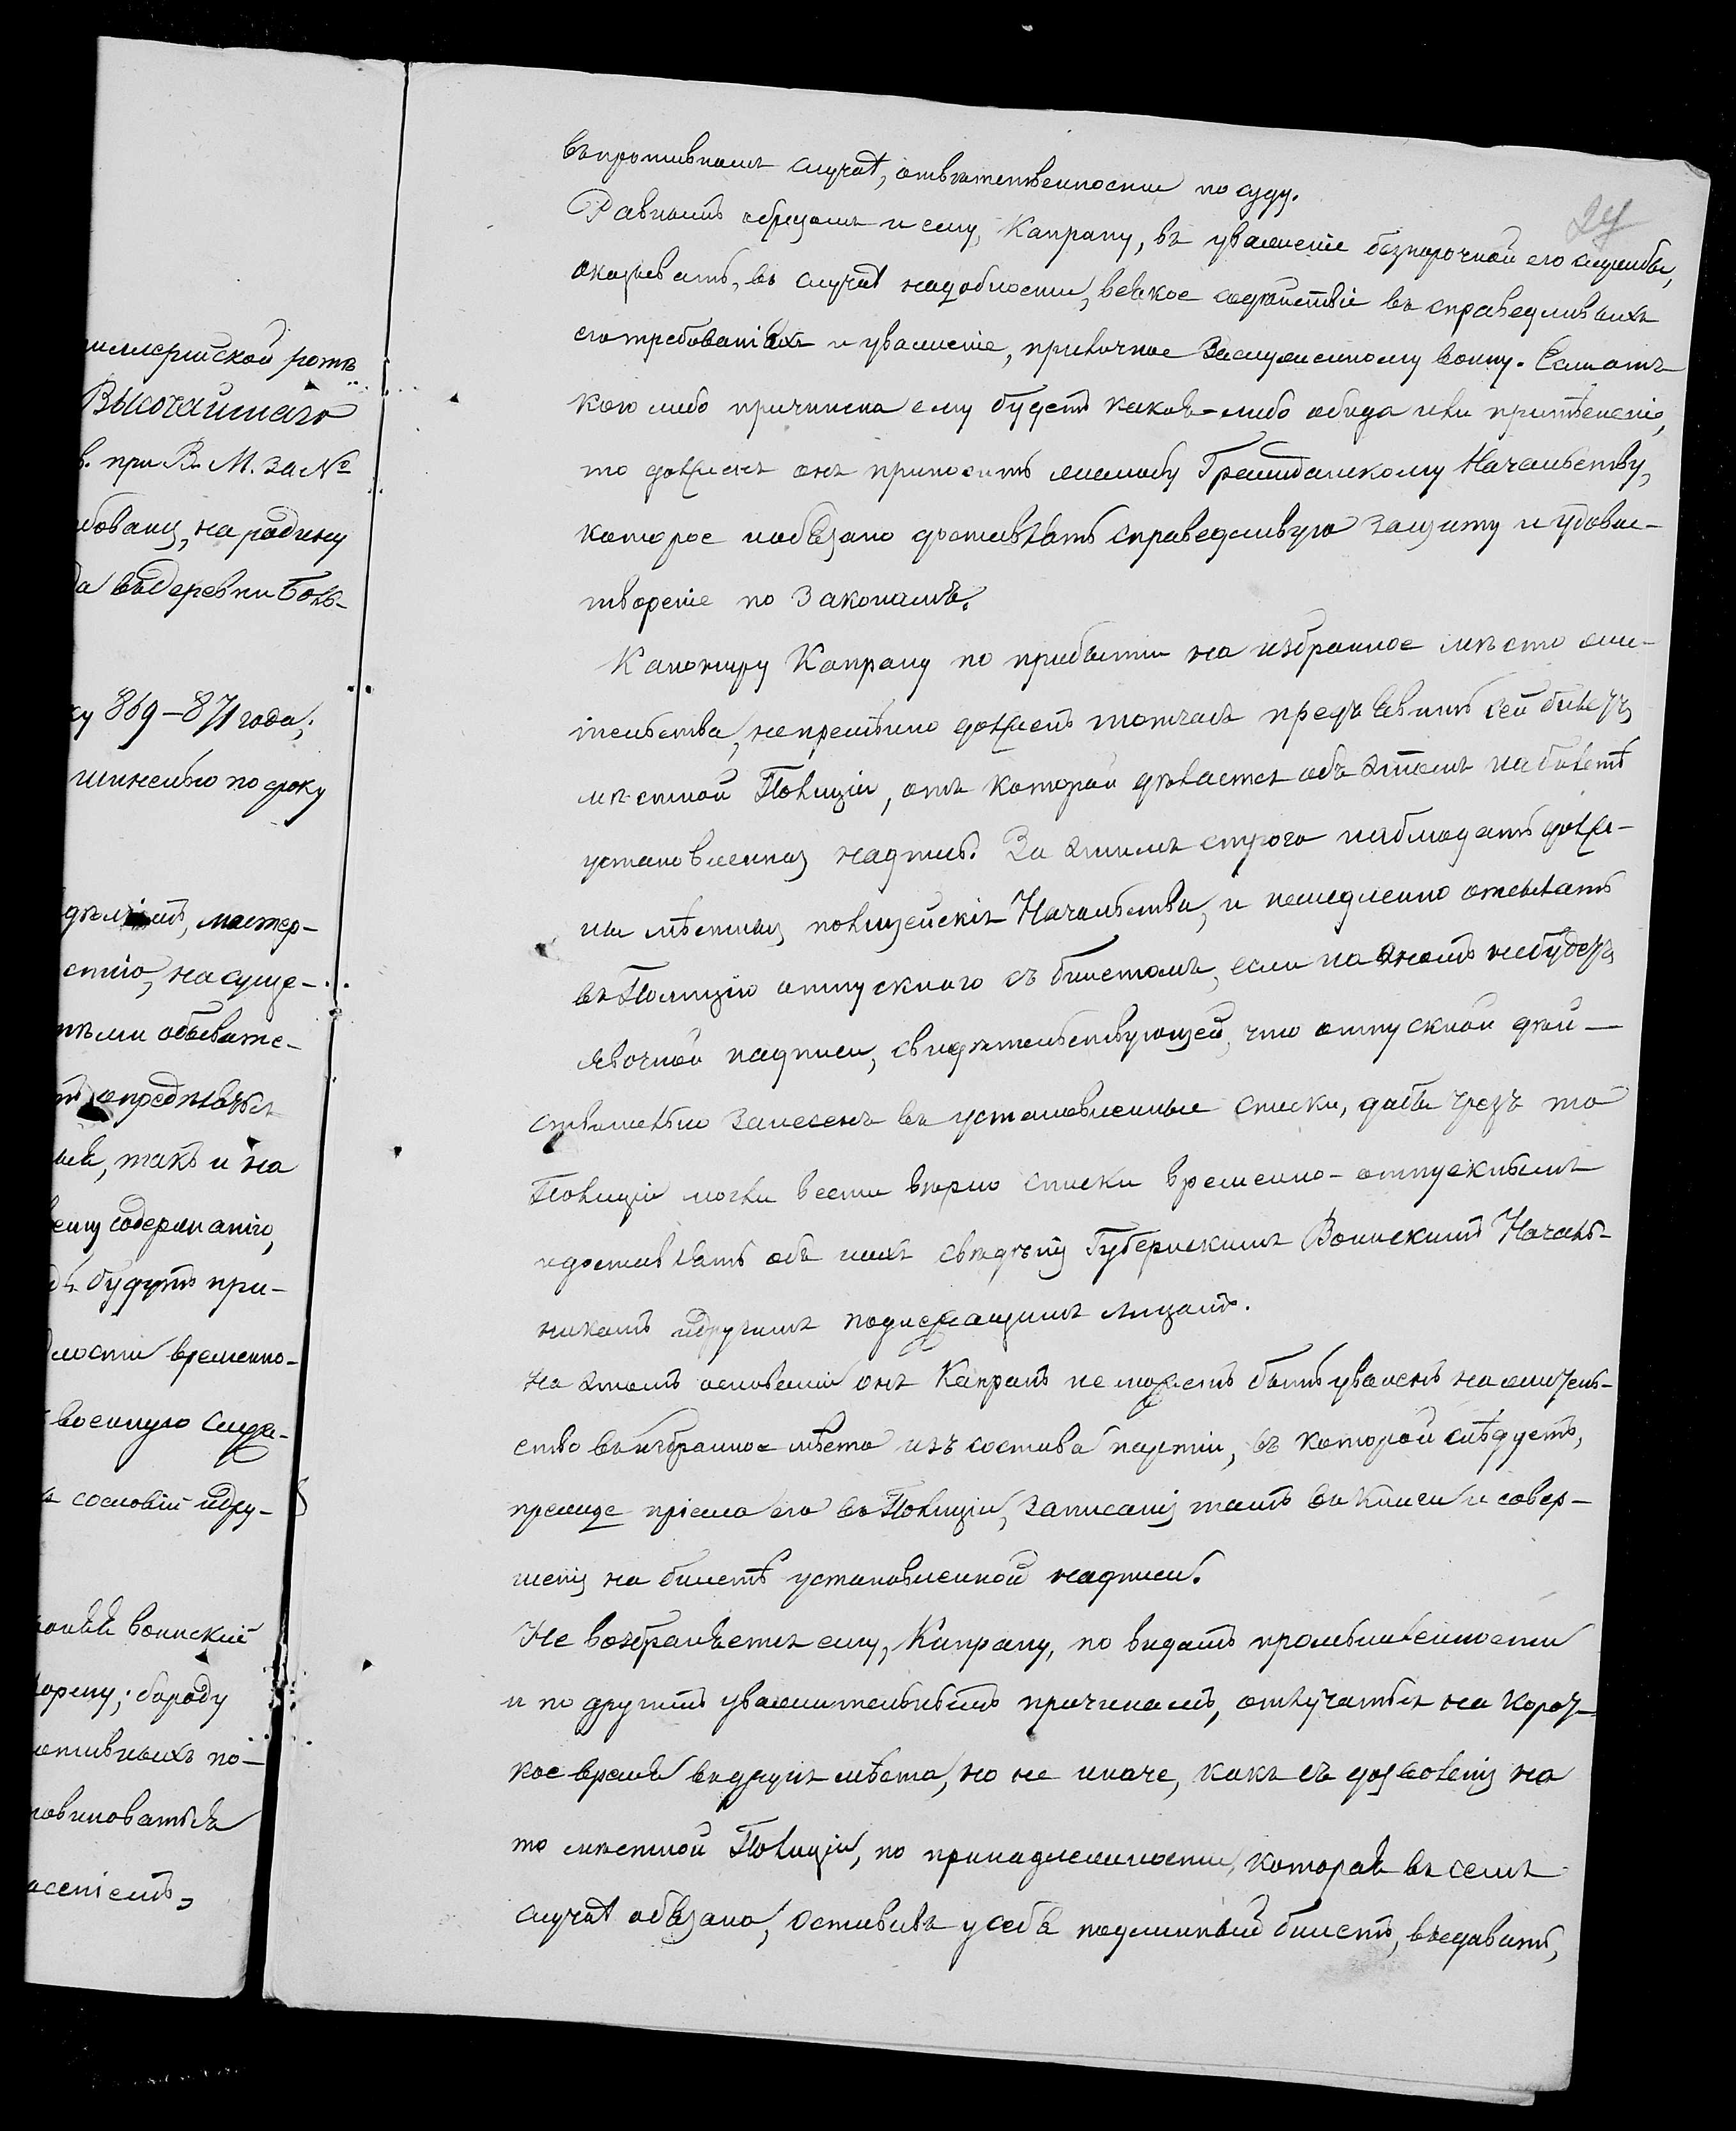 27
въ противномъ случаѣ, отвѣтственности по суду.
Равнымъ образомъ и ему, Капрану, въ уваженіе безпорочной его службы,
оказывать, въ случаѣ надобности, всякое содѣйствіе въ справедливыхъ
его требованіяхъ и уваженіе, приличное Заслуженному воину. Если отъ
кого либо причинена ему будетъ какая-либо обида или притѣсненіе,
то долженъ онъ приносить жалобу Гражданскому Начальству,
которое и обязано доставлять справедливую защиту и удовле-
твореніе по Законамъ.
Канониру Капрану по прибытіи на избранное мѣсто жи-
тельства, непремѣнно должен тотчасъ предъявить сей билетъ
мѣстной Полиціи, отъ которой дѣлается объ этомъ на билетѣ
установленная надпись. За этимъ строго наблюдать долж-
ны мѣстныя полицейскія Начальства, и немедленно отсылать
въ Полицію отпускнаго съ билетомъ, если на ономъ небудетъ
явочной надписи, свидѣтельствующей, что отпускной дѣй-
ствительно занесенъ въ установленные списки, дабы чрезъ то
Полиціи могли вести вѣрно списки временно-отпускнымъ
и доставлять объ нихъ свѣдѣнія Губернскимъ Воинскимъ Началь-
никамъ и другимъ подлежащимъ лицамъ.
На этомъ основаніи онъ Капранъ не можетъ быть уволенъ на житель-
ство въ избранное мѣсто изъ состава партіи, въ которой слѣдуетъ,
прежде пріема его въ Полиціи, записанія тамъ въ книги и совер-
шенія на билетѣ установленной надписи.
Не возбраняется ему, Капрану, по видамъ промышленности
и по другимъ уважительнымъ причинамъ, отлучаться на корот-
кое время въ другія мѣста, но не иначе, какъ съ дозволенія на
то мѣстной Полиціи, по принадлежности, которая въ семъ
случаѣ обязана, оставивъ у себя подлинный билетъ, выдавать,
тиллерійской ротѣ
Высочайшаго
в. при В. М. за №
на родину
въ деревни Боль-
869-871 года;
шинелью по сроку
мастер-
на суще-
обывате-
опредѣляться
такъ и на
содержанію,
будутъ при-
временно-
военную служ-
сословій и дру-
воинскій
форму; бороду
по-
повиноваться